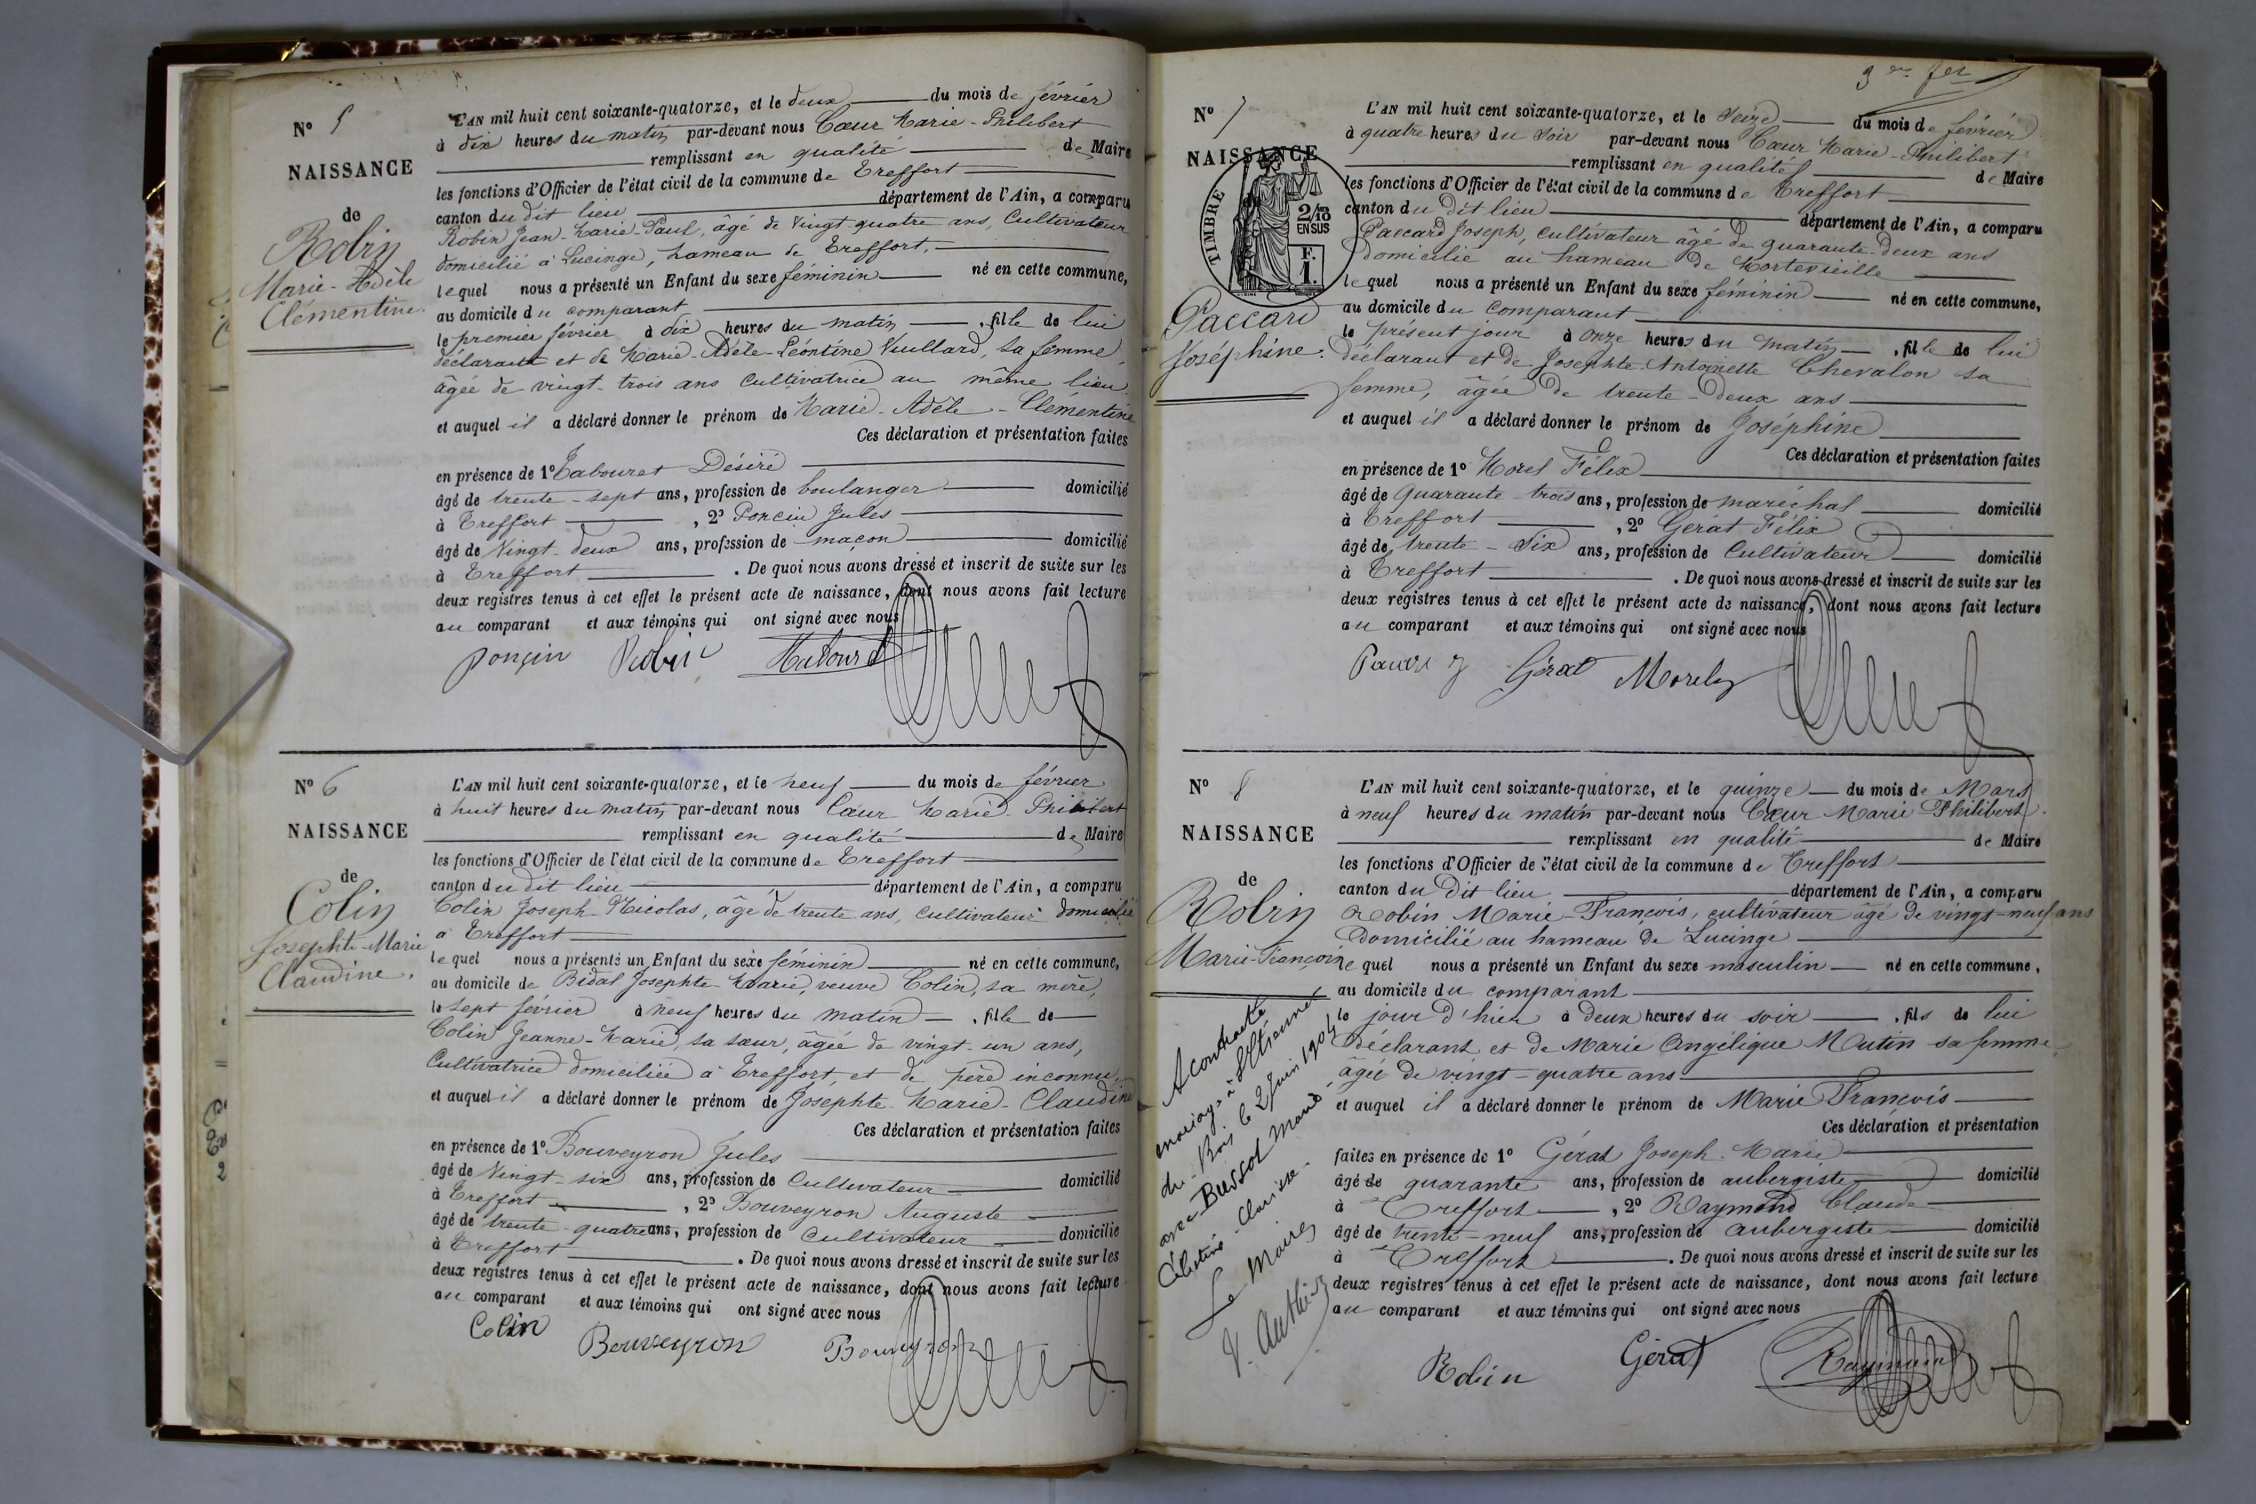 N° 5
NAISSANCE
de
Robin
Marie-Adèle
Clémentine.
L'AN mil huit cent soixante-quatorze, et le deux du mois de février
à dix heures du matin par-devant nous Cœur Marie-Philibert
remplissant en qualité de Maire
les fonctions d'Officier de l'état civil de la commune de Treffort
canton du dit lieu département de l'Ain, a comparu
Robin Jean-Marie-Paul, âgé de vingt quatre ans, Cultivateur
domicilié à Lucinge, hameau de Treffort,
lequel nous a présenté un Enfant du sexe féminin né en cette commune,
au domicile du comparant
le premier février à dix heures du matin, fille de lui
déclarant et de Marie-Adèle-Léontine Vuillard, sa femme,
âgée de vingt-trois ans Cultivatrice au même lieu
et auquel il a déclaré donner le prénom de Marie-Adèle-Clémentine
Ces déclaration et présentation faites
en présence de 1° Tabouret Désiré
âgé de trente-sept ans, profession de boulanger domicilié
à Treffort, 2° Poncin Jules
âgé de Vingt-deux ans, profession de maçon domicilié
à Treffort. De quoi nous avons dressé et inscrit de suite sur les
deux registres tenus à cet effet le présent acte de naissance, dont nous avons fait lecture
au comparant et aux témoins qui ont signé avec nous
ponçin Robin Tabouret
N° 6
NAISSANCE
de
Colin
Josephte-Marie
Claudine.
L'AN mil huit cent soixante-quatorze, et le neuf du mois de février
à huit heures du matin par-devant nous Cœur Marie-Philibert
remplissant en qualité de Maire
les fonctions d'Officier de l'état civil de la commune de Treffort
canton du dit lieu département de l'Ain, a comparu
Colin Joseph-Nicolas, âgé de trente ans, cultivateur domicilié
à Treffort
lequel nous a présenté un Enfant du sexe féminin né en cette commune,
au domicile de Bidal Josephte Marie, veuve Colin, sa mère,
le sept février à neuf heures du matin, fille de
Colin Jeanne-Marie, sa sœur, âgée de vingt-un ans,
Cultivatrice domiciliée à Treffort, et de père inconnu,
et auquel il a déclaré donner le prénom de Josephte-Marie-Claudine
Ces déclaration et présentation faites
en présence de 1° Bouveyron Jules
âgé de Vingt-six ans, profession de Cultivateur domicilié
à Treffort, 2° Bouveyron Auguste
âgé de trente-quatre ans, profession de Cultivateur domicilié
à Treffort. De quoi nous avons dressé et inscrit de suite sur les
deux registres tenus à cet effet le présent acte de naissance, dont nous avons fait lecture
au comparant et aux témoins qui ont signé avec nous
Colin Bouveyron Bouveyron
N° 7
NAISSANCE
TIMBRE
2/10
EN SUS
F.
1.
Paccard
Joséphine.
L'AN mil huit cent soixante-quatorze, et le seize du mois de février
à quatre heures du soir par-devant nous Cœur Marie-Philibert
remplissant en qualité de Maire
les fonctions d'Officier de l'état civil de la commune de Treffort
canton du dit lieu département de l'Ain, a comparu
Paccard Joseph, cultivateur âgé de quarante-deux ans
domicilié au hameau de Mortevieille
lequel nous a présenté un Enfant du sexe féminin né en cette commune,
au domicile du comparant
le présent jour à onze heures du matin, fille de lui
déclarant et de Josephte-Antoinette Chevalon sa
femme, âgée de trente-deux ans
et auquel il a déclaré donner le prénom de Joséphine
Ces déclaration et présentation faites
en présence de 1° Morel Félix
âgé de Quarante-trois ans, profession de maréchal domicilié
à Treffort, 2° Gérat Félix
âgé de trente-six ans, profession de Cultivateur domicilié
à Treffort. De quoi nous avons dressé et inscrit de suite sur les
deux registres tenus à cet effet le présent acte de naissance, dont nous avons fait lecture
au comparant et aux témoins qui ont signé avec nous
Gérat Morel
N° 8
NAISSANCE
de
Robin
Marie-François
L'AN mil huit cent soixante-quatorze, et le quinze du mois de Mars
à neuf heures du matin par-devant nous Cœur Marie Philibert
remplissant en qualité de Maire
les fonctions d'Officier de l'état civil de la commune de Treffort
canton du dit lieu département de l'Ain, a comparu
Robin Marie-François, cultivateur âgé de vingt-neuf ans
Domicilié au hameau de Lucinge
lequel nous a présenté un Enfant du sexe masculin né en cette commune,
au domicile du comparant
le jour d'hier à deux heures du soir, fils de lui
Déclarant et de Marie Angélique Mutin sa femme,
âgée de vingt-quatre ans
et auquel il a déclaré donner le prénom de Marie François
Ces déclaration et présentation
faites en présence de 1° Gérat Joseph-Marie
âgé de quarante ans, profession de aubergiste domicilié
à Treffort, 2° Raymond Claude
âgé de trente-neuf ans, profession de aubergiste domicilié
à Treffort. De quoi nous avons dressé et inscrit de suite sur les
deux registres tenus à cet effet le présent acte de naissance, dont nous avons fait lecture
au comparant et aux témoins qui ont signé avec nous
Robin Gérat Raymond
A contracté
mariage à St Etienne
du-Bois le 2 Juin 1904
avec Buessot Marie
Célestine-Clarisse.
Le Maire,
V. Authier